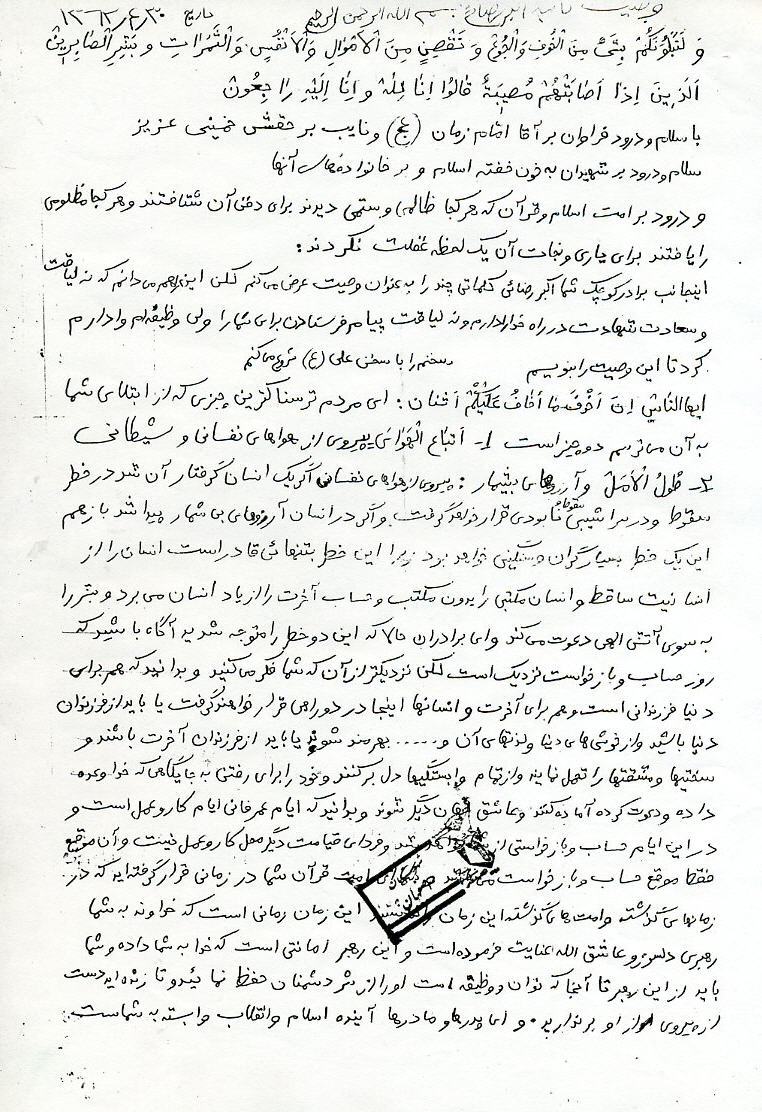 وصیت نامه اکبر رضائی بسم الله الرحمن الرحیم تاریخ ۱۳۶۲/۴/۳۰
وَ لَنَبْلُوَنَّکُمْ بِشَیْءٍ مِنَ الْخَوفِ وَالْجُوعِ وَ نَقْصٍ مِنَ الْاَمْوالِ وَالْاَنْفُسِ وَالثَّمَراتِ وَ بَشِّرِ الصّابِرینَ
اَلَّذینَ اِذا اَصابَتْهُمْ مُصیبَةٌ قالُوا اِنّا لِلّهِ وَ اِنّا اِلَیْهِ راجِعُونَ
با سلام و درود فراوان بر آقا امام زمان (عج) و نایب بر حقش خمینی عزیز
سلام و درود بر شهیدان به خون خفته اسلام و بر خانواده‌های آنها
و درود بر امت اسلام و قرآن که هر کجا ظالمی و ستمی دیدند برای دفن آن شتافتند و هر کجا مظلومی
را یافتند برای یاری و نجات آن یک لحظه غفلت نکردند:
اینجانب برادر کوچک شما اکبر رضائی کلماتی چند را به عنوان وصیت عرض می‌کنم لکن این را هم می‌دانم که نه لیاقت
و سعادت شهادت در راه خدا را دارم و نه لیاقت پیام فرستادن برای شما را ولی وظیفه‌ام وادارم
کرد تا این وصیت را بنویسم سخنم را با سخن علی (ع) شروع می‌کنم
ایها الناس اِنَّ اَخْوَفَ ما اَخافُ عَلَیْکُمْ اَثنان: ای مردم ترسناکترین چیزی که از ابتلای شما
به آن می‌ترسم دو چیز است ۱- اتباع الهَوای پیروی از هواهای نفسانی و شیطانی
۲- طُولُ الْاَمَل و آرزوهای بیشمار: پیروی از هواهای نفسانی اگر یک انسان گرفتار آن شد در خطر
سقوط و در سراشیبی سقوط نابودی قرار خواهد گرفت و اگر در انسان آرزوهای بی شمار پیدا شد باز هم
این یک خطر بسیار گران و سنگینی خواهد بود زیرا این خطر بتنهائی قادر است انسان را از
انسانیت ساقط و انسان مکتبی را بدون مکتب و حساب آخرت را از یاد انسان می‌برد و بشر را
به سوی آتش الهی دعوت می‌کند و ای برادران حالا که این دو خطر را متوجه شدید آگاه باشید که
روز حساب و بازخواست نزدیک است لکن نزدیکتر از آن که شما فکر می‌کنید و بدانید که هم برای
دنیا فرزندانی است و هم برای آخرت و انسانها اینجا در دوراهی قرار خواهند گرفت یا باید از فرزندان
دنیا باشید و از خوشی‌های دنیا و لذتهای آن و ..... بهره‌مند شوند یا باید از فرزندان آخرت باشند و
سختیها و مشقتها را تحمل نمایند و از تمام وابستگیها دل برکنند و خود را برای رفتن به جایگاهی که خدا وعده
داده و دعوت کرده آماده کنند و عاشق جهان دیگر شوند و بدانید که ایام عمر فانی ایام کار و عمل است و
در این ایام حساب و بازخواستی از و فردای قیامت دیگر محل کار و عمل نیست و آن موقع
فقط موقع حساب و بازخواست امت قرآن شما در زمانی قرار گرفته‌اید که در
زمانهای گذشته و امت های گذشته این زمان را این زمان زمانی است که خداوند به شما
رهبری دلسوز و عاشق الله عنایت فرموده است و این رهبر امانتی است که خدا به شما داده و شما
باید از این رهبر تا آنجا که توان و وظیفه است او را از شر دشمنان حفظ نمائید و تا زنده‌اید دست
از پیروی از او برندارید. و ای پدرها و مادرها آینده اسلام و انقلاب وابسته به شماست